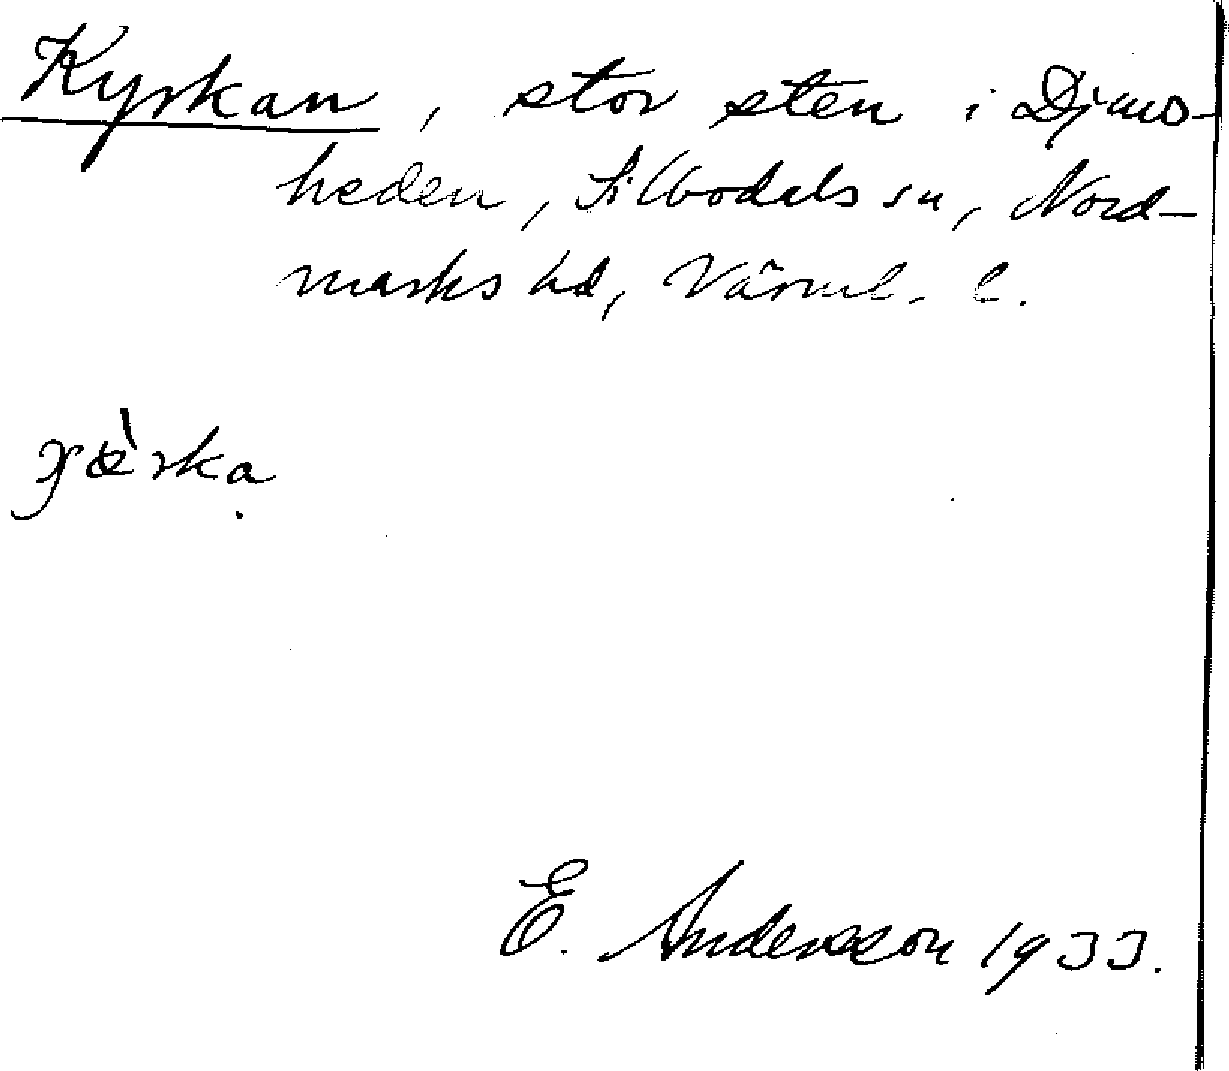 Kyrkan, stor sten i Djavs-
heden, Silbodals sn, Nord-
marks hd, Värml. l.
E. Andersson 1933.